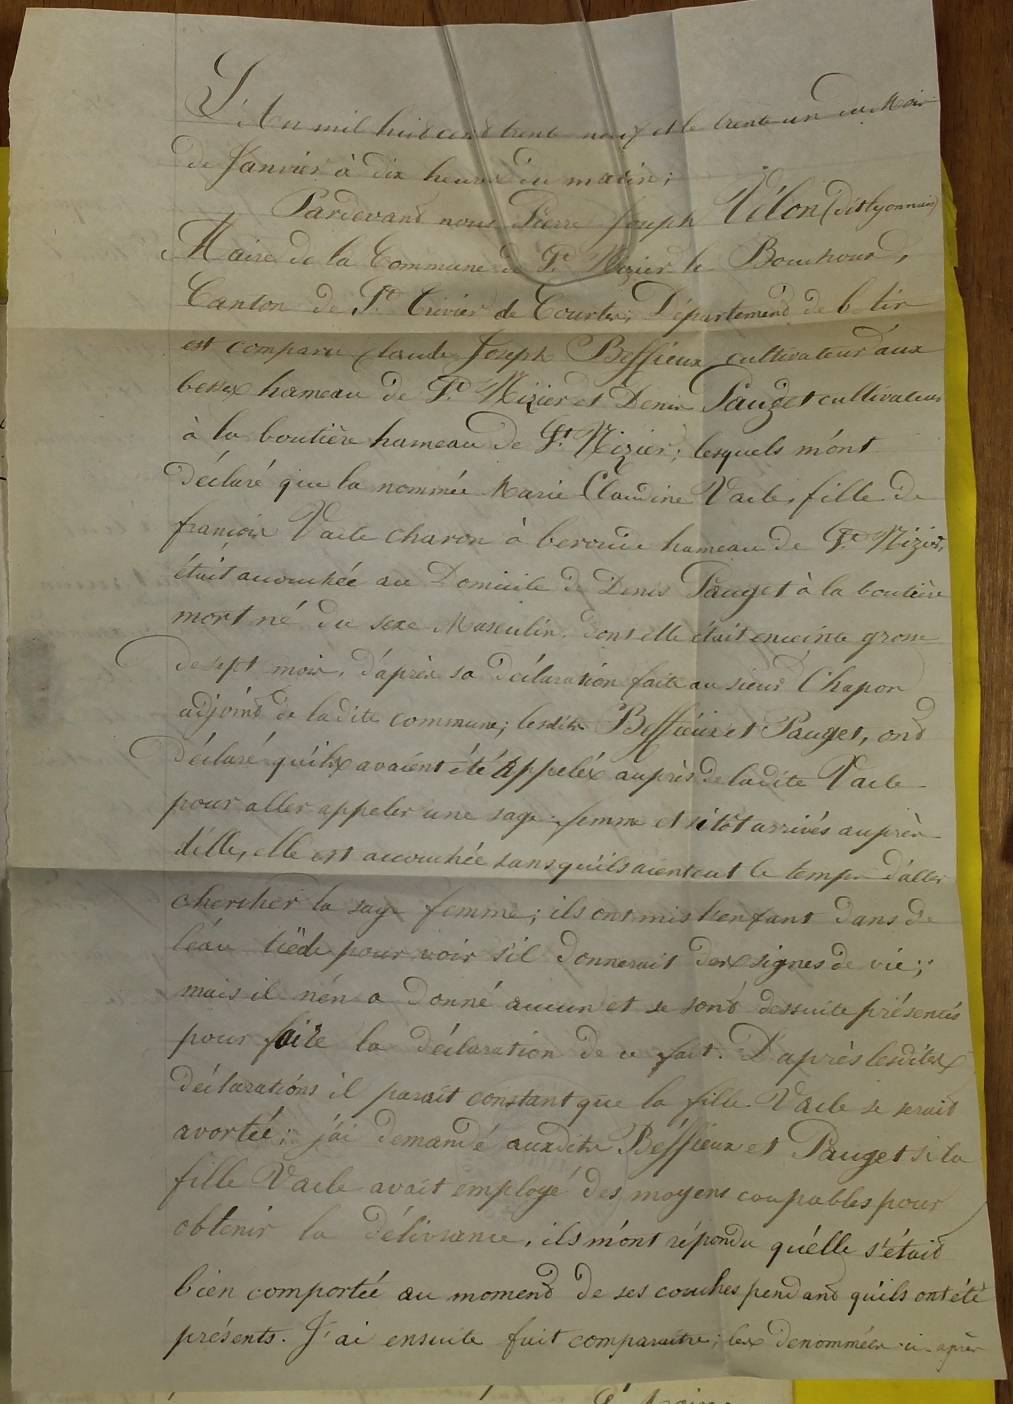 L'An mil huit cent trente neuf et le trente un du Mois
de Janvier à dix heures du matin;
Pardevand nous Pierre Joseph Vélon (dit lyonnais)
Maire de la Commune de St Nizier le Bouchoud,
Canton de St Trivier de Courtes, Département de l'
est comparu Claude Joseph Beffieux cultivateur aux
bessex hameau de St Nizier et Denis Pauget cultivateur
à la boutière hameau de St Nizier; lesquels m'ónt
déclaré que la nommée Marie Claudine Vacle, fille de
françois Vacle charon à hameau de St Nizier,
était accouchée au Domicile de Denis Pauget à la boutière
mort né du sexe Masculin, dont elle était enceinte grosse
de sept mois, d'après sa déclaration faite au sieur Chapon
adjoind de ladite commune; lesdits Beffieux et Pauget, ond
déclaré qu'ilx avaient été Appeléx auprès de ladite Vacle
pour aller appeler une sage-femme et sitôt arrivés auprès
d'élle, elle est accouchée sans qu'ils aient eut le temps d'aller
chercher la sage femme; ils ont mis l'enfant dans de
l'éau tiède pour voir s'il donnerait dex signes de vie;
mais il n'én a donné aucun et se sond dessuite présentés
pour faire la déclaration de ce fait. D'après lesditex
déclarations il parait constant que la fille Vacle se serait
avortée; j'ai demandé auxdits Béffieux et Pauget si la
fille Vacle avait employé des moyens coupables pour
obtenir la délivrance, ils m'ónt répondu qu'élle s'était
bien comportée au momend de ses couches pendand qu'ils ont été
présents. J'ai ensuite fait comparaitre; lex denommées ci-après